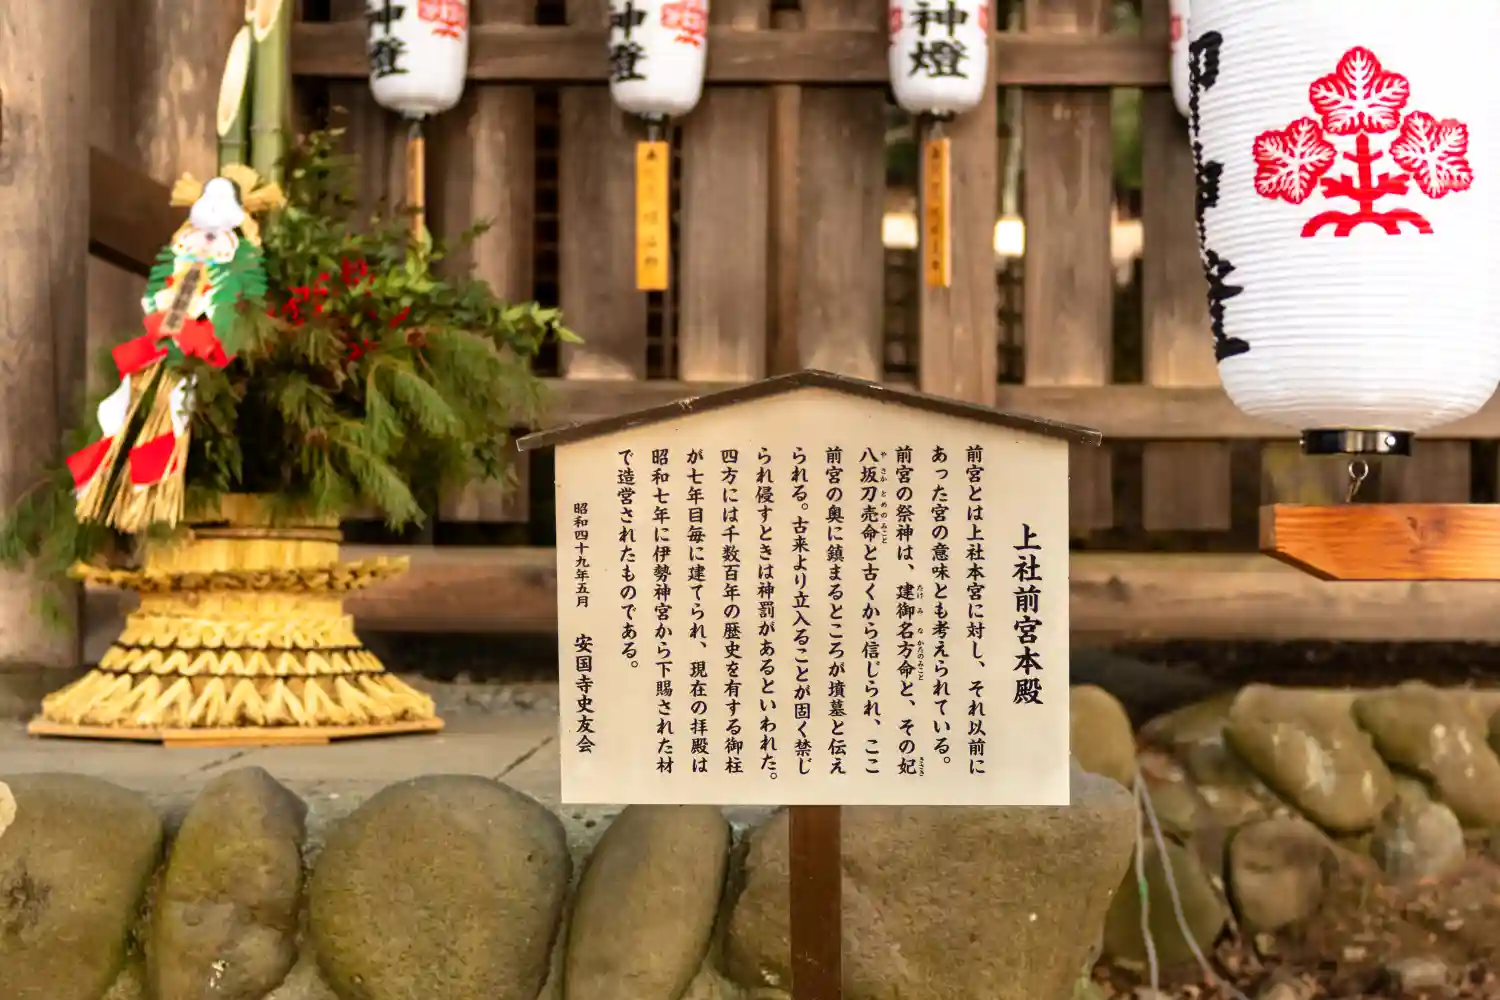 上社前宮本殿
前宮とは上社本宮に対し、それ以前に
あった宮の意味とも考えられている。
前宮の祭神は、建御名方命と、その妃
たけみなかたのみこと
きさき
八坂刀売命と古くから信じられ、ここ
やさかとめのみこと
前宮の奥に鎮まるところが墳墓と伝え
られる。古来より立入ることが固く禁じ
られ侵すときは神罰があるといわれた。
四方には千数百年の歴史を有する御柱
が七年目毎に建てられ、現在の拝殿は
昭和七年に伊勢神宮から下賜された材
で造営されたものである。
昭和四十九年五月　安国寺史友会
神燈
神燈
神燈